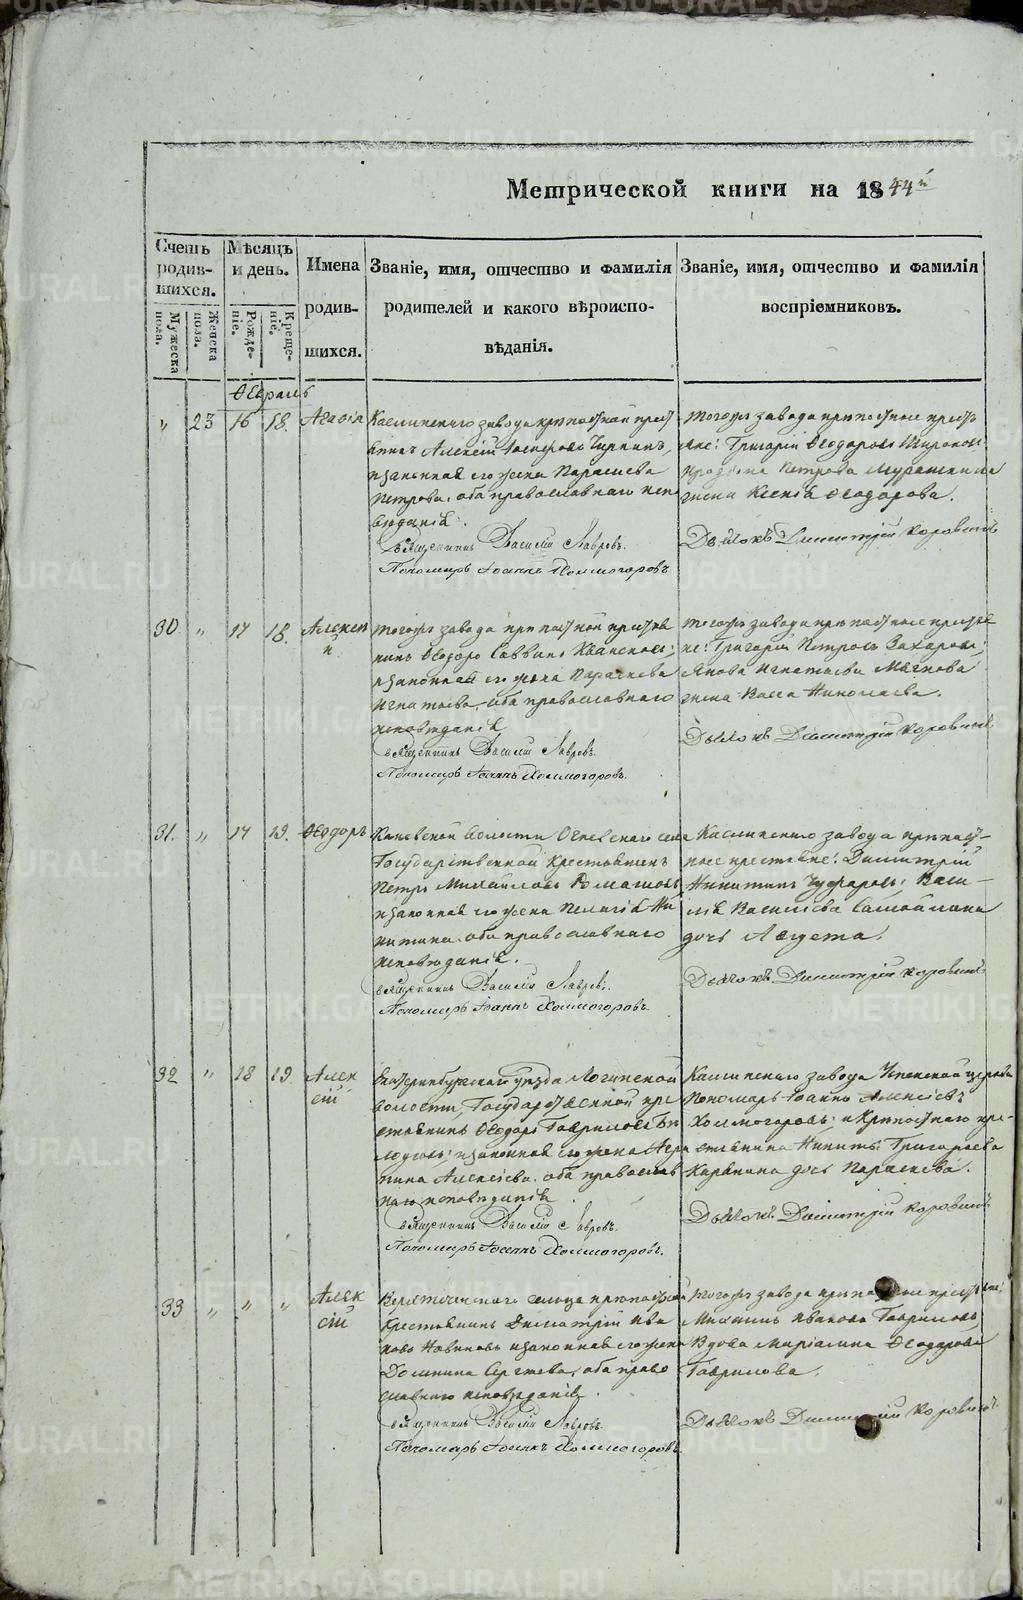 Метрической книги на 1844й
Счетъ родив-шихся.
Мужеска пола.
Женска пола.
Мѣсяцъ и день.
Рожде-ніе.
Креще-ніе.
Имена родив-шихся.
Званіе, имя, отчество и фамилія
родителей и какого вѣроиспо-
вѣданія.
Званіе, имя, отчество и фамилія
воспріемниковъ.
Февраль
„ 23 16 18. Агафія
Каслинскаго завода крѣпостной крест
янинъ Алексѣй
и законная его жена Параскева
Петрова, оба православнаго испо
вѣданія.
Священникъ Василій Лавровъ.
Пономарь Іоаннъ Холмогоровъ
Тогожъ завода крѣпостные крестья
не: Григорій Ѳеодоровъ
Петрова Мурашкина
жена Ксенія Ѳеодорова.
Дьячокъ Димитрій Коровинъ
30 „ 17 18. Алексѣ
й
Тогожъ завода крѣпостной крестья
нинъ Ѳеодоръ Саввинъ
и законная его жена Параскева
Игнатьева, оба православнаго
исповѣданія
Священникъ Василій Лавровъ.
Пономарь Іоаннъ Холмогоровъ.
Тогожъ завода крѣпостные крестья
не: Григорій Петровъ Захаровъ;
Якова Игнатьева Мягкова
жена Васса Николаева.
Дьячокъ Димитрій Коровинъ
31. „ 17 19. Ѳеодоръ
волости Огневскаго села
Государственной Крестьянинъ
Петръ Михайловъ Ромашовъ,
и законная его жена Пелагія Ни
китина, оба православнаго
исповѣданія.
Священникъ Василій Лавровъ.
Пономарь Іоаннъ Холмогоровъ.
Каслинскаго завода крѣпост-
ные крестьяне: Димитрій
Никитинъ; Васи-
лія Васильева
дочь Августа.
Дьячокъ Димитрій Коровинъ
32 „ 18 19. Алек
сій
Екатеринбургскаго уѣзда
волости, Государственной кре
стьянинъ Ѳеодоръ Гавриловъ
и законная его жена Агри
пина Алексѣева, оба православ
наго исповѣданія
Священникъ Василій Лавровъ.
Пономарь Іоаннъ Холмогоровъ.
Каслинскаго завода Успенской церкви
Пономарь Іоаннъ Алексѣевъ
Холмогоровъ; и крѣпостнаго кре-
стьянина Никиты Григорьева
дочь Параскева.
Дьячокъ Димитрій Коровинъ
33 „ „ „ Алек
сій
сельца крѣпостной
Крестьянинъ Димитрій Ива
новъ Новиковъ и законная его жена
Домнина Сергѣева, оба право
славнаго исповѣданія.
Священникъ Василій Лавровъ.
Пономарь Іоаннъ Холмогоровъ
Тогожъ завода крѣпостные крестьяне:
Ивановъ Гавриловъ,
Вдова Маріамна Ѳеодорова
Гаврилова.
Дьячокъ Димитрій Коровинъ
METRIKI.GASO-URAL.RU